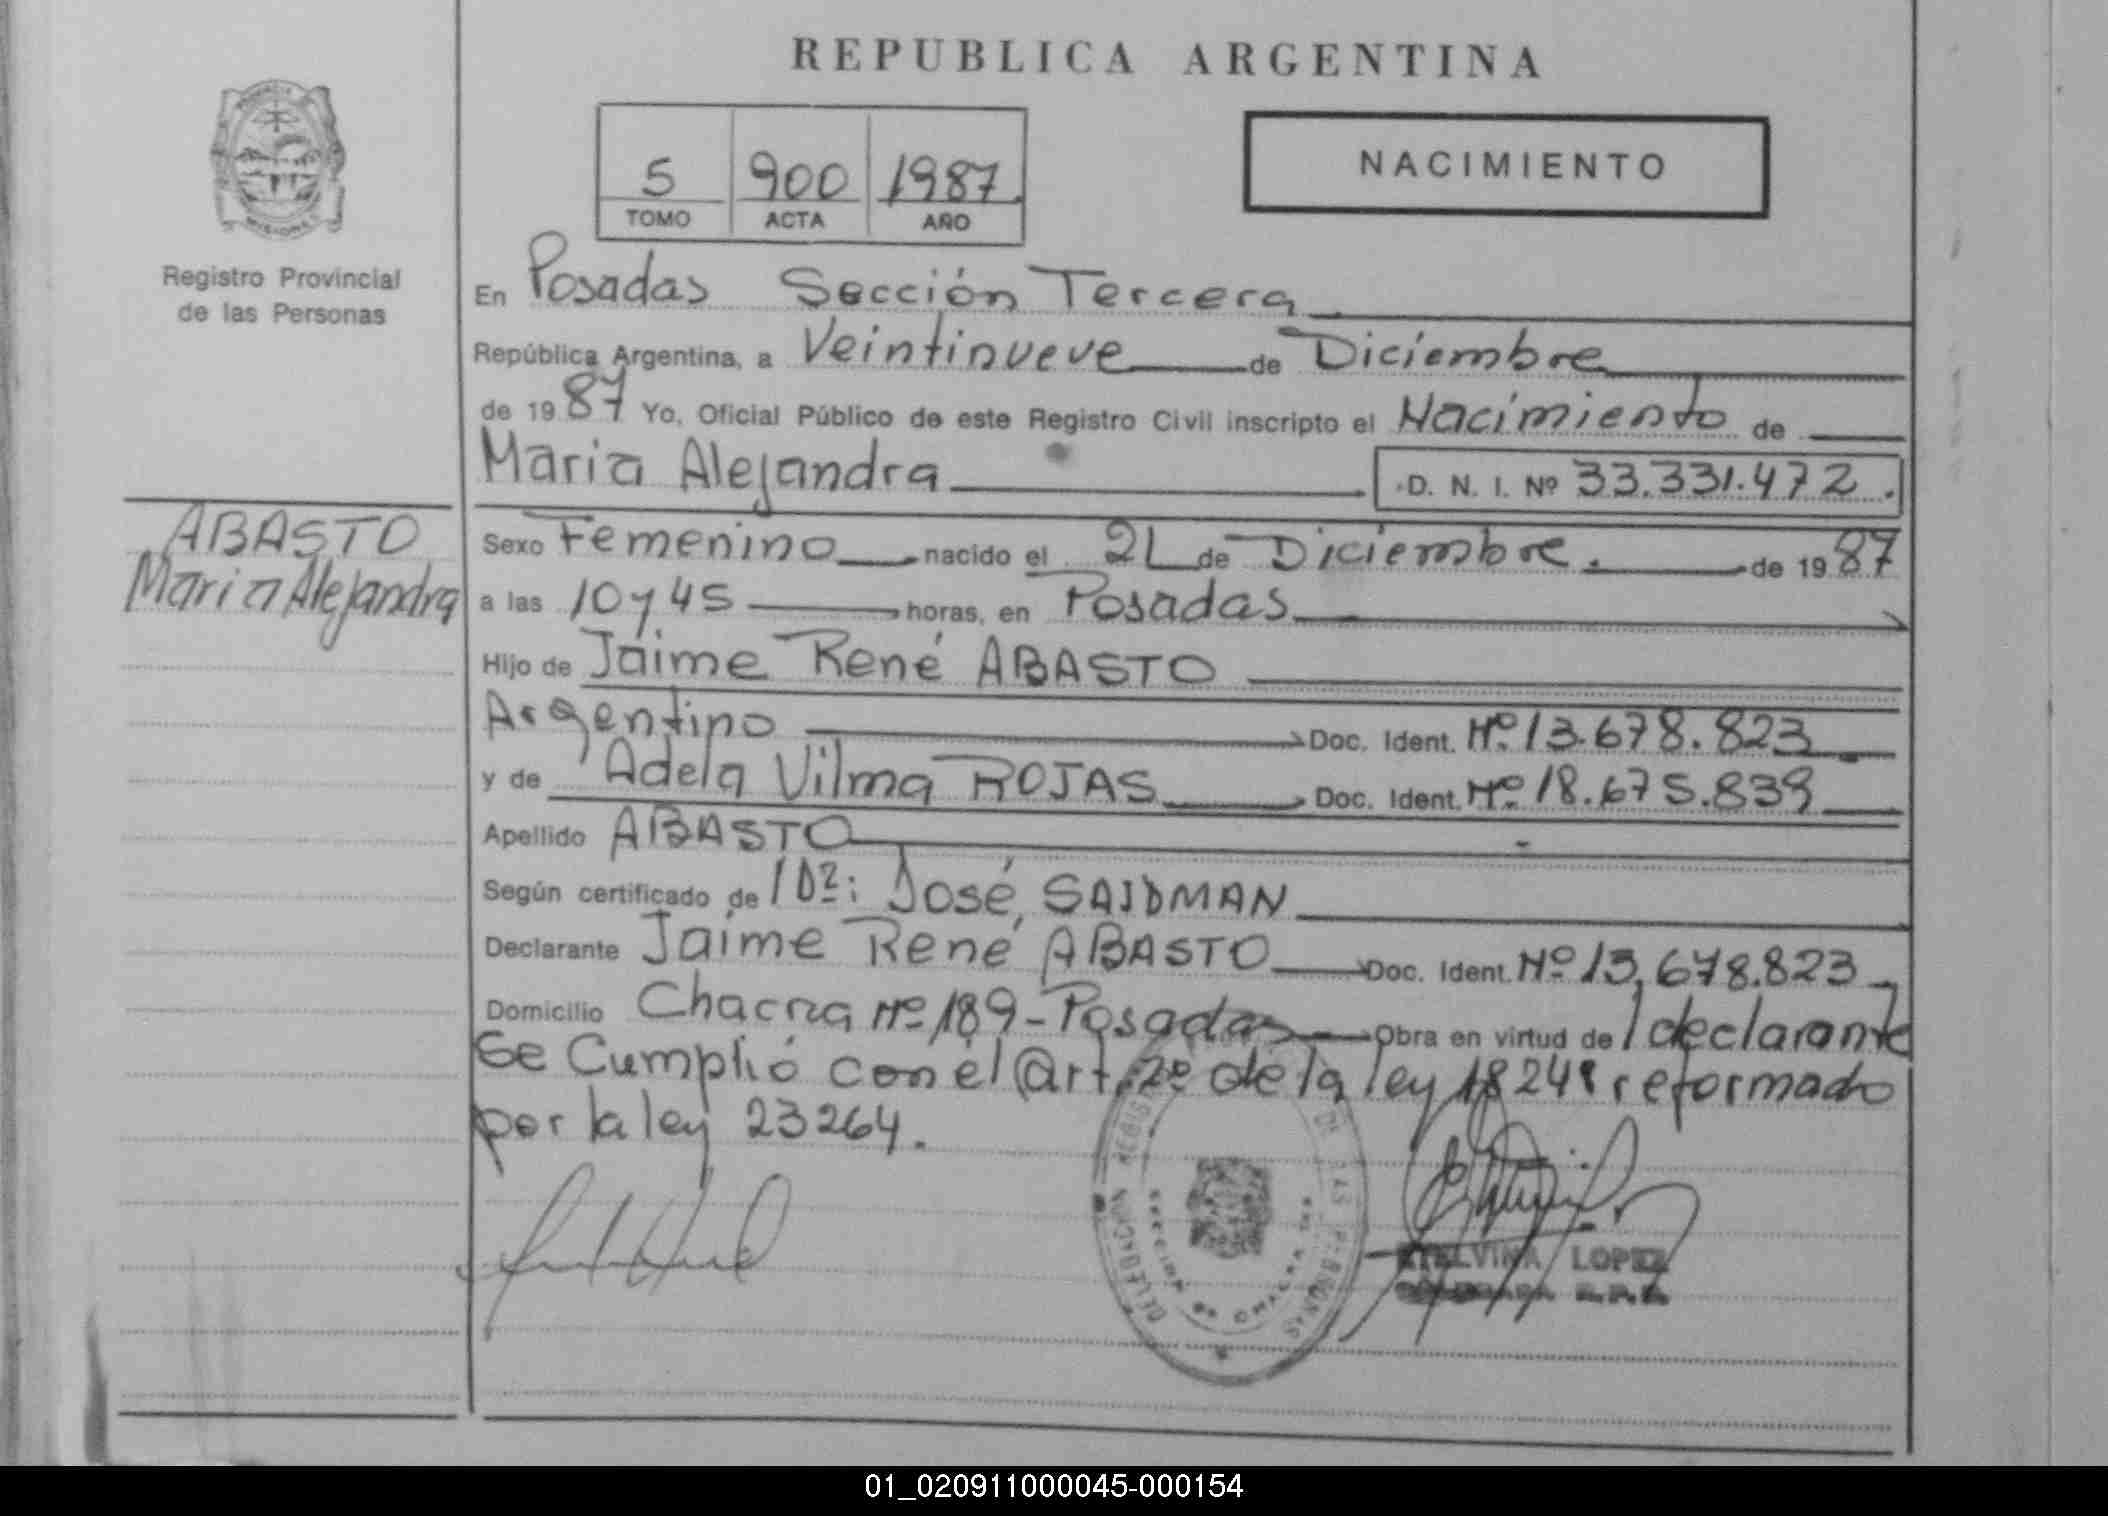 REPUBLICA ARGENTINA
PROVINCIA
MISIONES
5 900 1987
TOMO ACTA AÑO
NACIMIENTO
Registro Provincial
de las Personas
En Posadas Sección Tercera
República Argentina, a Veintinueve de Diciembre
de 1987 Yo, Oficial Público de este Registro Civil inscripto el Nacimiento de
Maria Alejandra D. N. I. Nº 33.331.472.
ABASTO
Maria Alejandra
Sexo Femenino nacido el 21 de Diciembre. de 1987
a las 10 y 45 horas, en Posadas
Hijo de Jaime René ABASTO
Argentino Doc. Ident. Nº 13.678.823
y de Adela Vilma ROJAS Doc. Ident. Nº 18.675.839
Apellido ABASTO
Según certificado de l Dº: José, SAIDMAN
Declarante Jaime René ABASTO Doc. Ident. Nº 13,678.823
Domicilio Chacra Nº 189 - Posadas Obra en virtud de l declarante
Se Cumplió con el Art. 2º de la ley 18248 reformado
por la ley 23264.
DELEGACION REGISTRO DE LAS PERSONAS
SECCION 3ª CHACRA
ETELVINA LOPEZ
01_020911000045-000154